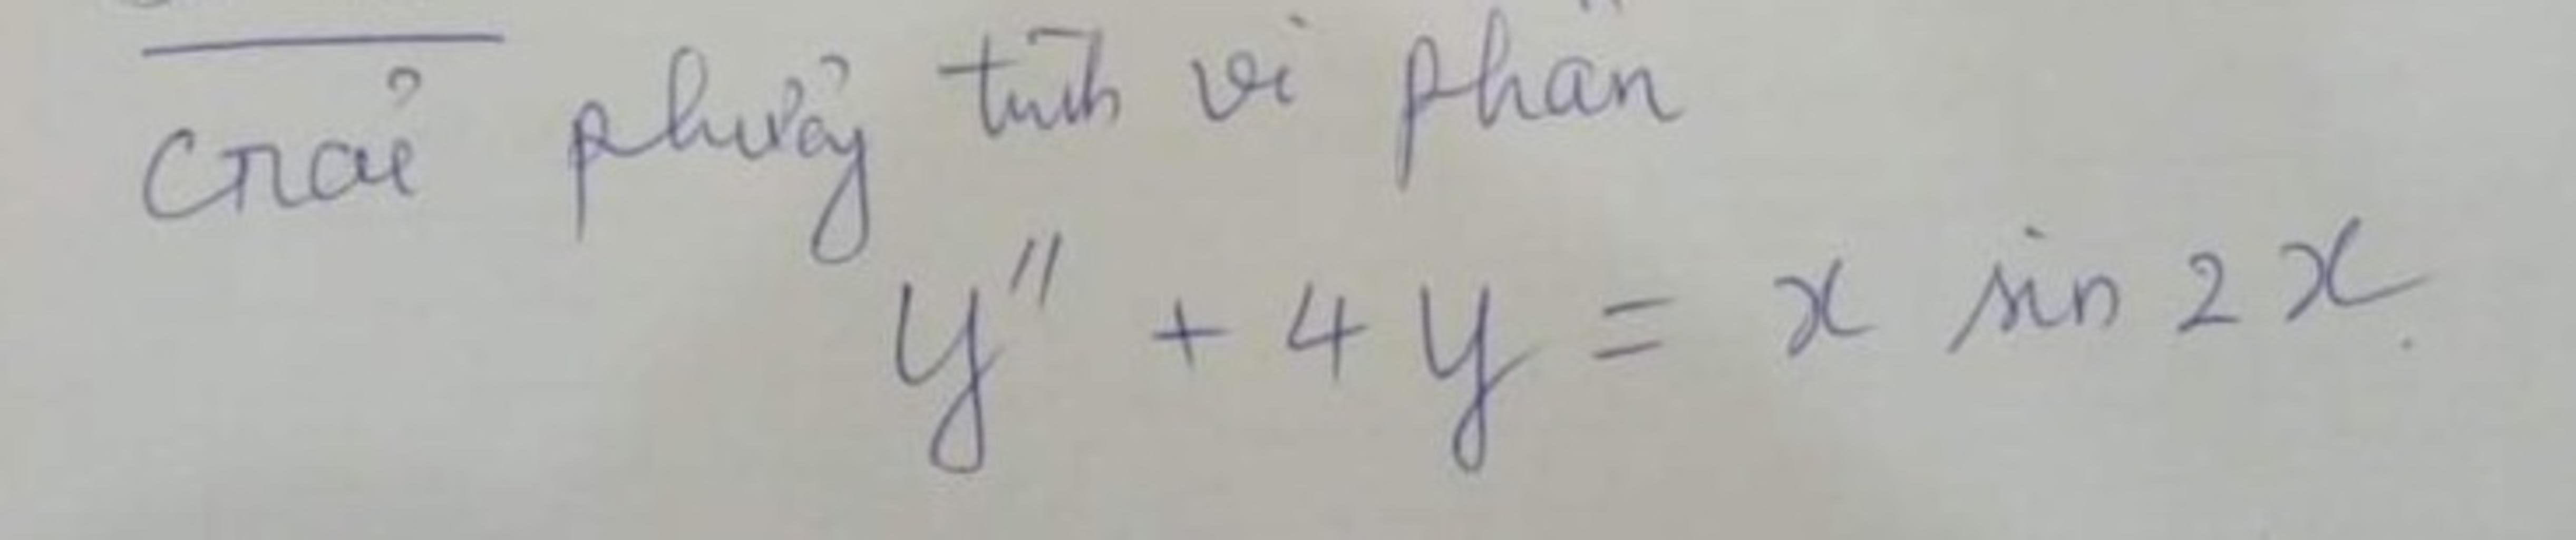 Giải phương trình vi phân
y'' + 4y = x sin 2x.